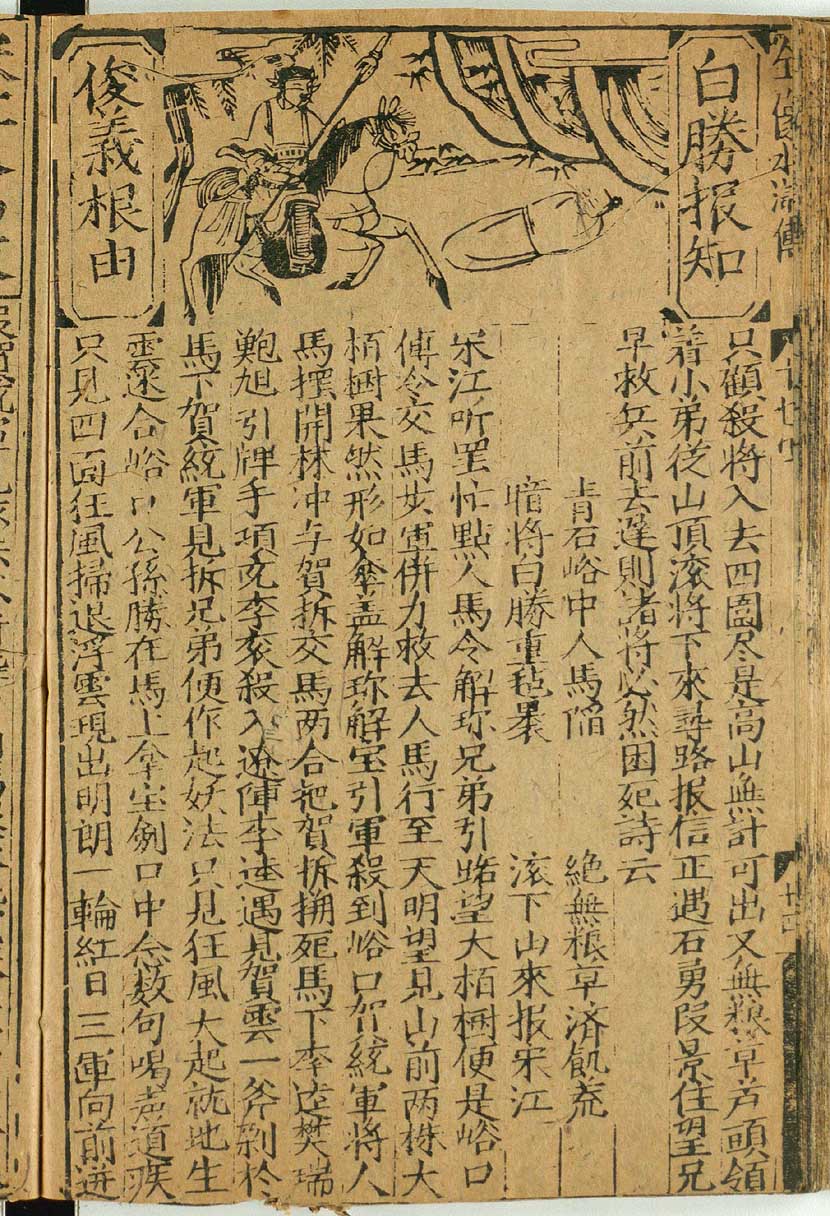 全像水滸傳
白勝報知
俊義根由
十七卷
只顧殺將入去四圍尽是高山無計可出又無粮草芦頭領
着小弟従山頂滚將下來尋路报信正遇石勇段景住望兄
早救兵前去遅則諸將必然困死詩云
青石峪中人馬陷 絶無粮草済飢荒
暗將白勝重毡裹 滚下山來报宋江
宋江听罢忙點人馬令解珎兄弟引路望大栢樹便是峪口
傅令交馬步軍併力救去人馬行至天明望見山前两株大
栢樹果然形如傘盖解珎解宝引軍殺到峪口贺統軍將人
馬摆開林冲与贺拆交馬两合把贺拆搠死馬下李逵樊瑞
鮑旭引牌手項充李衮殺入遼陣李逵遇見賀雲一斧剁於
馬下賀統軍見拆兄弟便作起妖法只見狂風大起就地生
雲迷合峪口公孫勝在馬上拿宝劍口中念数句喝声道疾
只見四面狂風掃退浮雲現出明朗一輪紅日三軍向前迸